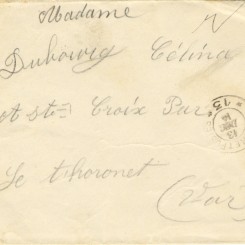 Madame
Dubourg Célina
ot ste Croix Par
Le thoronet
(Var